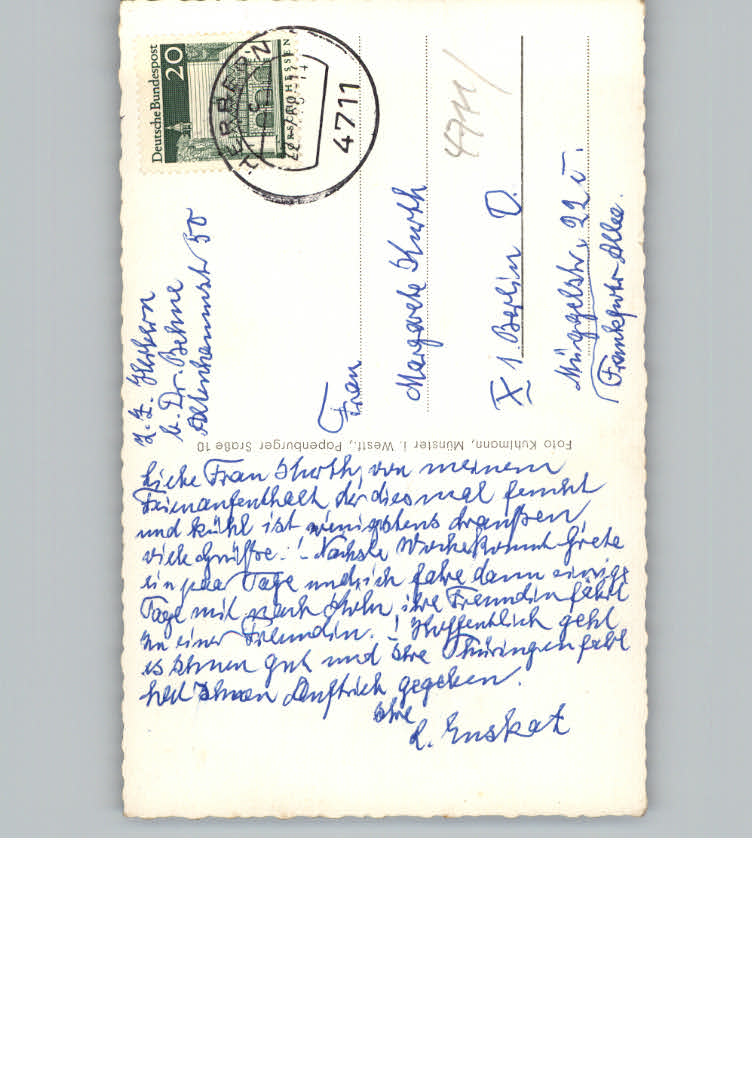 Deutsche Bundespost
20
LORSCH/HESSEN
4711
4711/
b. Dr. Behne
50
Frau
Margarete
X 1. Berlin O.
Müggelstr. 22 v.
Frankfurter Allee.
Foto Kuhlmann, Münster i. Westf., Papenburger Straße 10
Liebe Frau von meinem
der diesmal feucht
und kühl ist wenigstens draußen,
viele Grüße! Nächste Woche kommt Grete
ein paar Tage und ich fahre dann einige
Tage mit nach ihre Freundin fährt
zu einer Freundin.! Hoffentlich geht
es Ihnen gut und Ihre Thüringenfahrt
hat Ihnen Auftrieb gegeben.
Ihre
L. Enskat